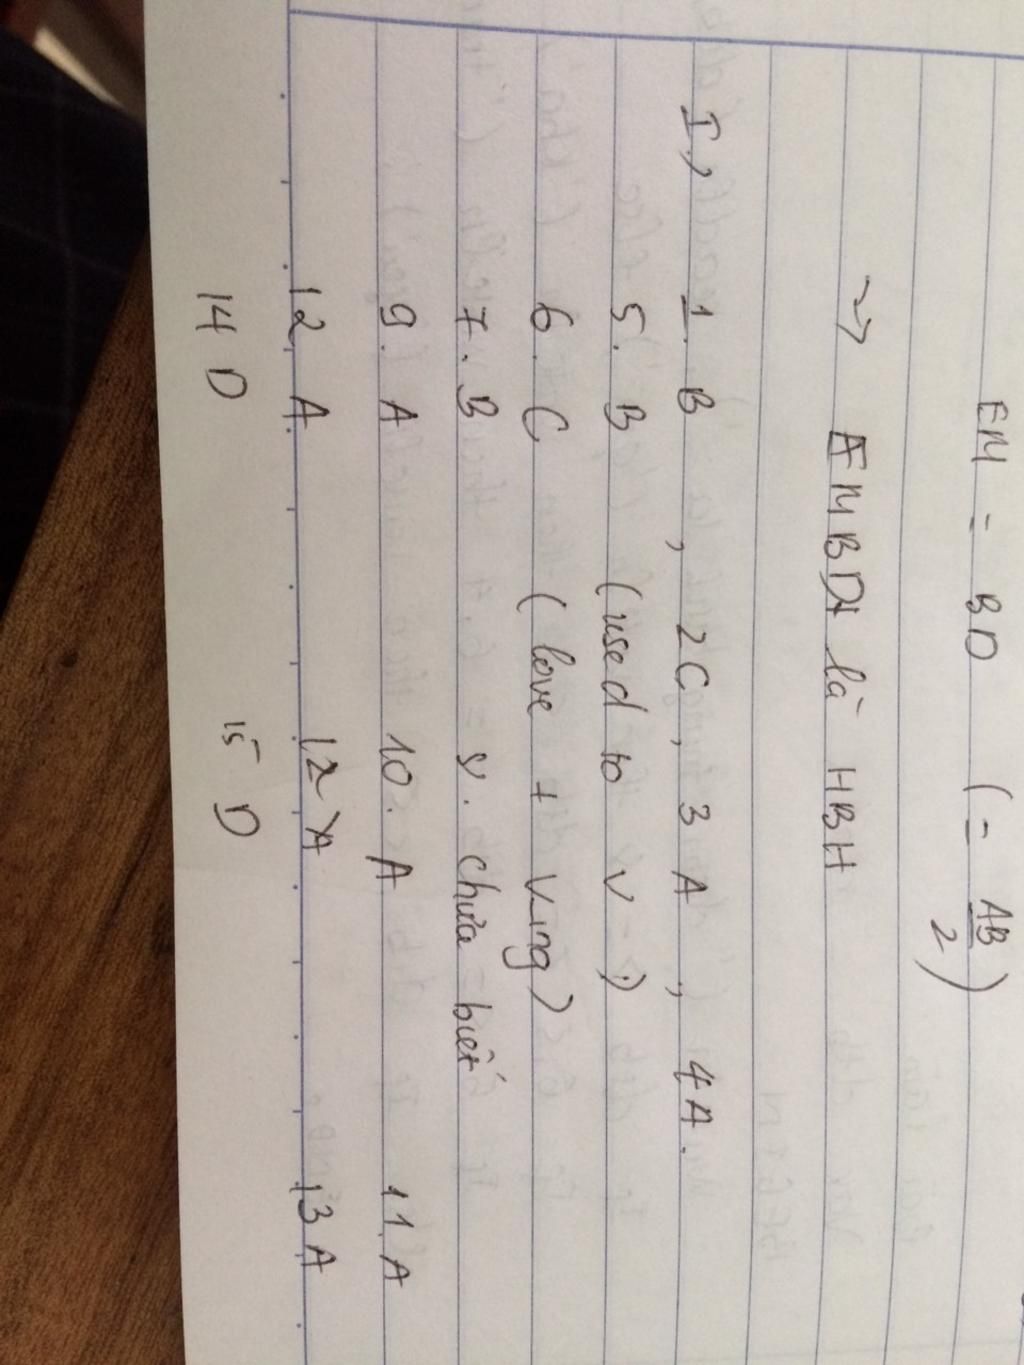 EM = BD ( = AB/2 )
→ EMBD là HBH
I, 1. B , 2C, 3 A , 4A.
5. B (used to V-)
6. C ( love + Ving )
7. B 8. chưa biết
9. A 10. A 11. A
12. A 12 A 13 A
14 D 15 D